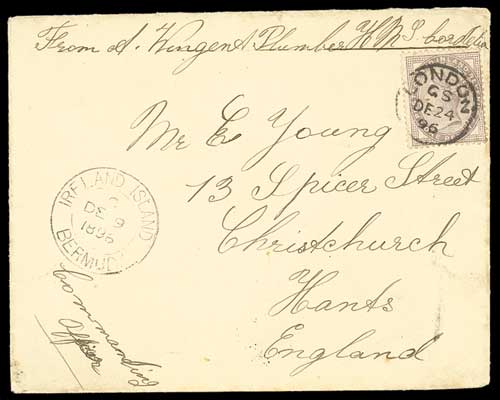 From A. Wingent Plumber H.M.S. Cordelia
LONDON
GS
DE 24
96
Mr E Young
13 Spicer Street
Christchurch
Hants
England
IRELAND ISLAND
DE 9
1896
BERMUDA
Commanding
Officer